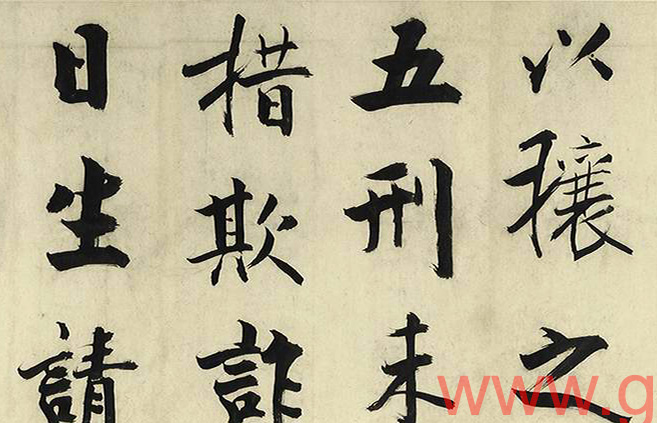 以攘之
五刑未
措欺詐
日生請
www.g